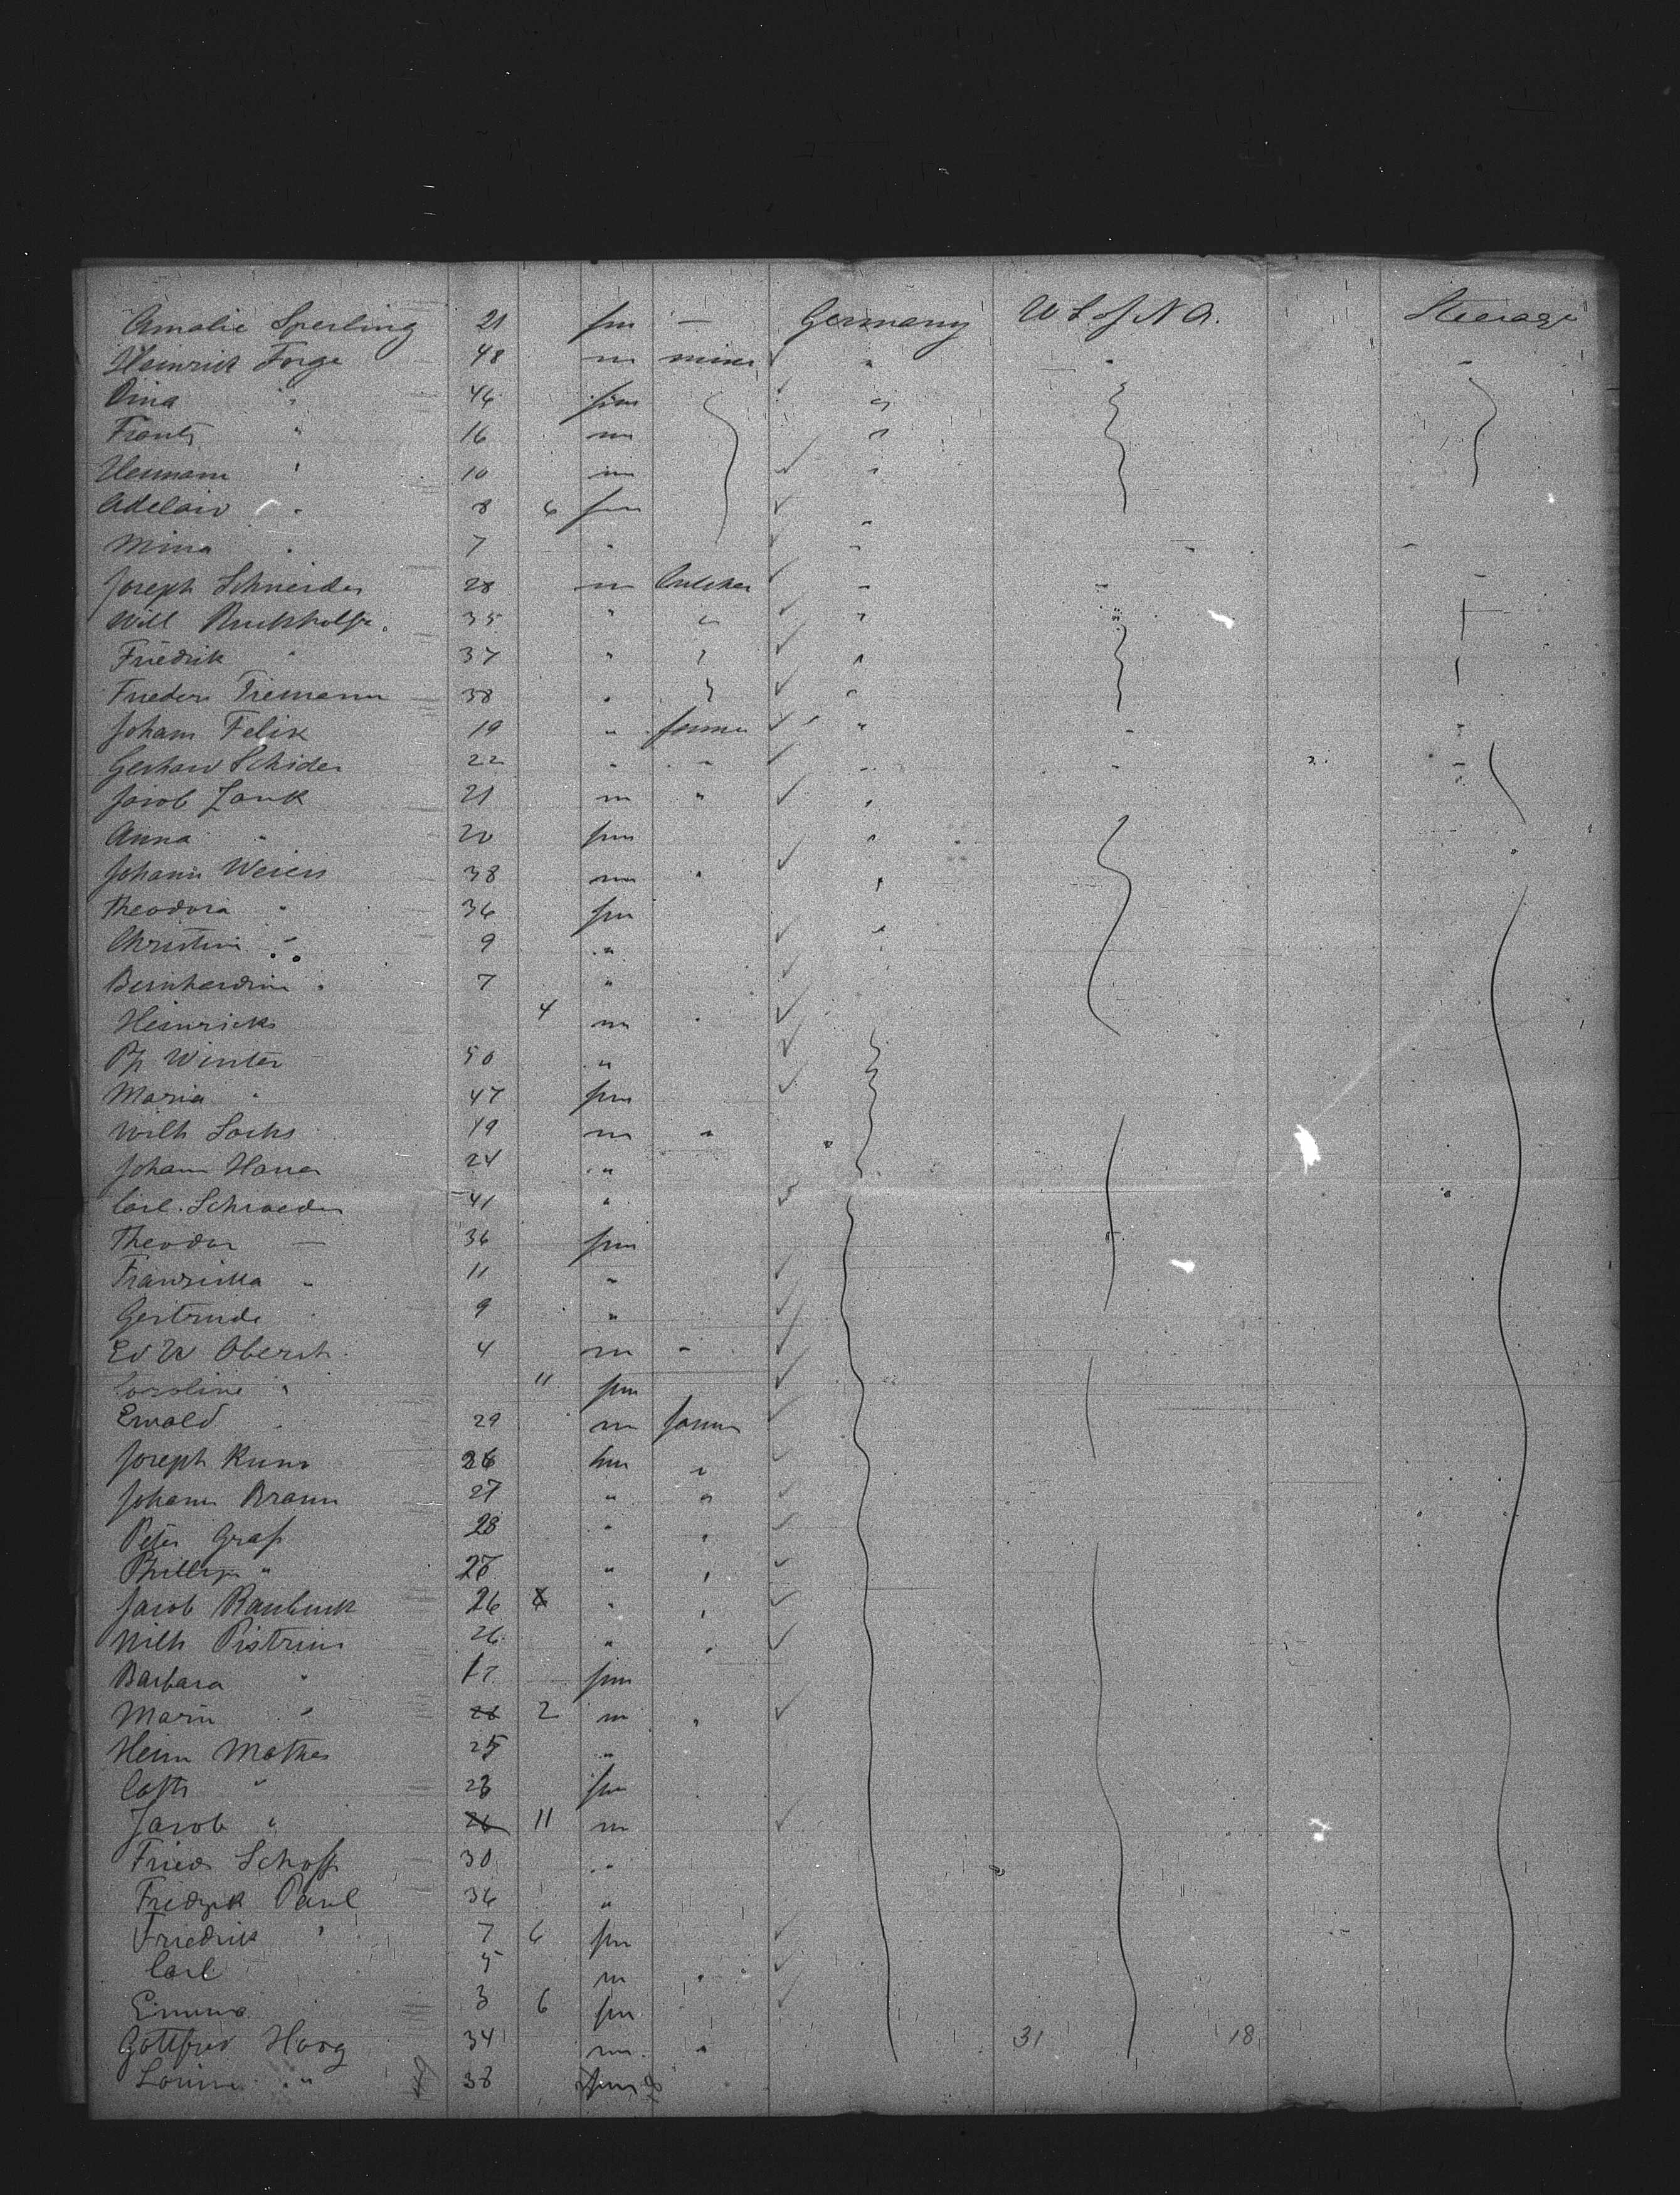 Amalie Sperling 21 fm — Germany U S of N A. Steerage
Heinrich Forge 48 m miner " " "
Dina " 46 fm "
Frantz " 16 m "
Hermann " 10 m "
Adelaid " 8 6 fm "
Mina " 7 " " " "
Joseph Schneider 28 m Butcher " " "
Will Buckholtz. 35 " " "
Friedrik " 37 " "
Frieder Tiemann 38 " "
Johann Felix 19 " farmer " " "
Gerhard Schider 22 " " " " "
Jacob Zank 21 m " "
Anna " 20 fm "
Johann Weiers 38 m " "
Theodora " 36 fm
Christine " 9 " "
Bernhardine " 7 "
Heinrich 4 m "
Winter 50 "
Maria " 47 fm
Wilh Sachs 19 m "
Johann 24 "
Carl Schroeder 41 "
Theodor — 36 fm
Franziska " 11 "
Gertrude 9 "
Ed W Obersh. 4 m "
Caroline " 11 fm
Ewald 29 m farmer
Joseph 26 "
Johann Braun 27 " "
Peter Graf 28 " "
Phillip " 27 " "
Jacob 26 " "
Wilh Pistrius 26 " "
Barbara " 17 fm
Marin " 2 m "
Heinr Mathes 25 "
Cath " 23 fm
Jacob " 11 m
Fried Schoff 30 "
Fredrik Paul 36 "
Friedrik " 7 6 fm
Carl 5 m "
Emma 3 6 fm
Gottfried Haag 34 m " 31 18
Louise " 38 fm